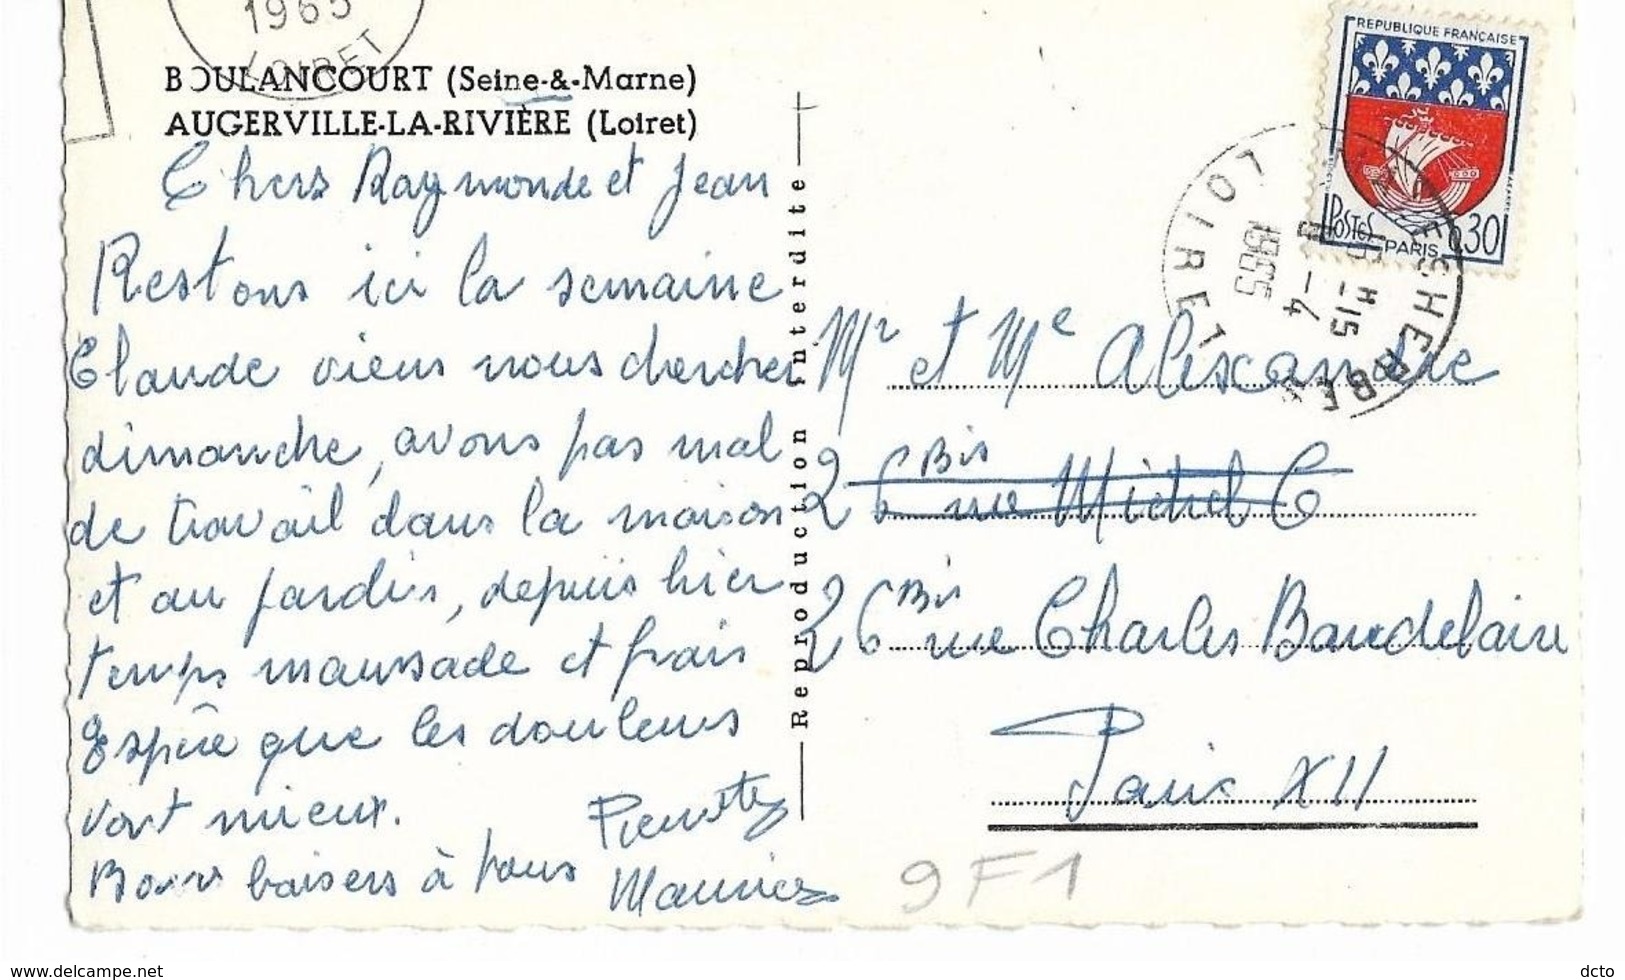 1965
LOIRET
BOULANCOURT (Seine-&-Marne)
AUGERVILLE-LA-RIVIÈRE (Loiret)
Chers Raymonde et Jean
Restons ici la semaine
Claude viens nous chercher
dimanche, avons pas mal
de travail dans la maison
et au jardin, depuis hier
temps maussade et frais
Espère que les douleurs
vont mieux.
Bons baisers à tous
Pierrette
Maurice
Reproduction interdite
REPUBLIQUE FRANÇAISE
POSTES
PARIS
0,30
MALESHERBES
LOIRET
15 H 15
-4
1965
Mr et Me Alexandre
26 Bis rue Michel C
26 Bis rue Charles Baudelaire
Paris XII
9F1
https://www.delcampe.net
dcto